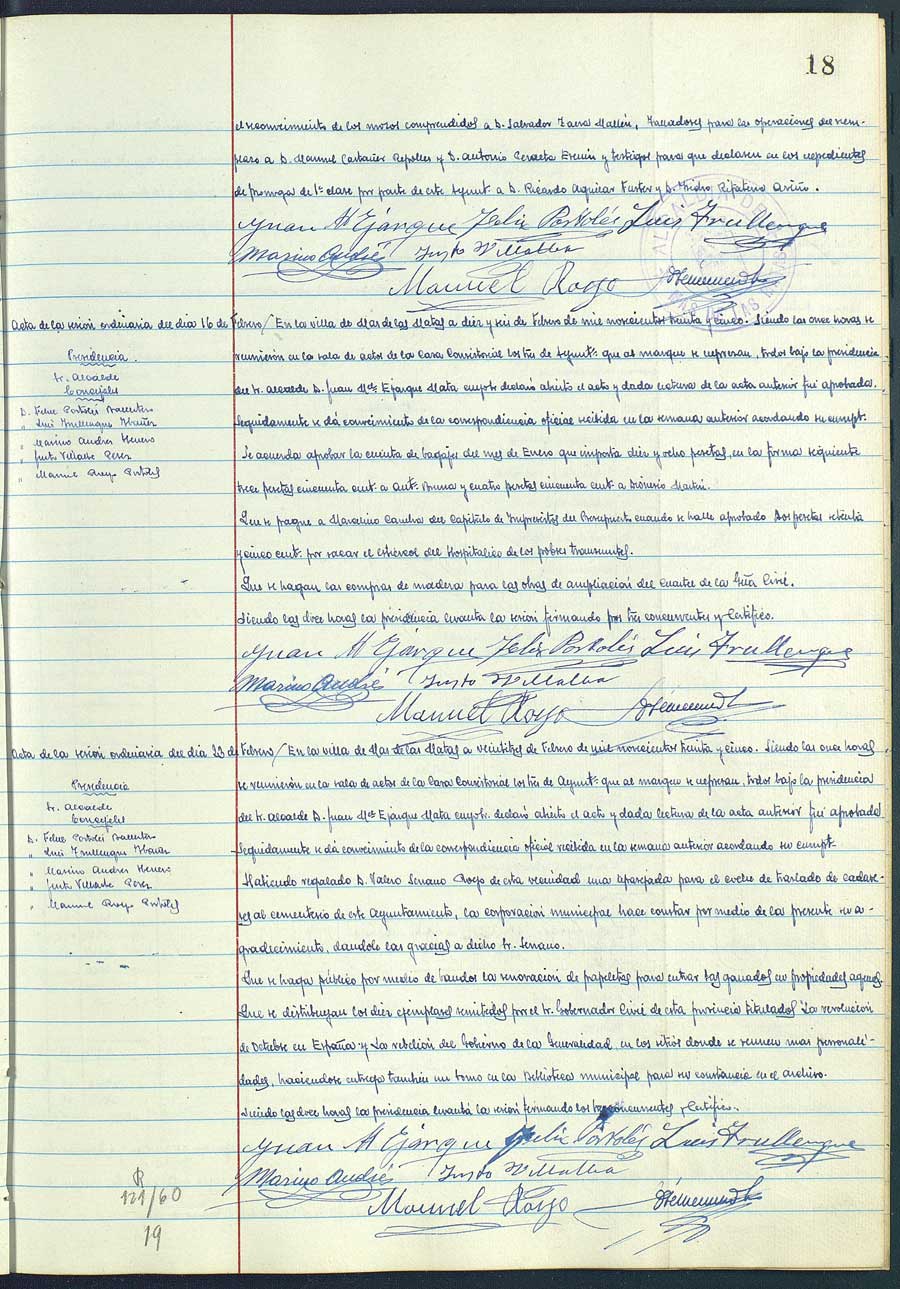 18
el reconocimiento de los mozos comprendidos a D. Salvador Zaera Mallén, Talladores para las operaciones del reem-
plazo a D. Manuel Castañer Repolles y D. Antonio Peralta Eremin y testigos para que declaren en los expedientes
de prorroga de 1ª clase por parte de este Ayunt. a D. Ricardo Aguilar Fuster y D. Isidro Rifaterra Ariño.
Juan Mª Ejarque Felix Portolés Luis Frullenque
Marino Andrés Justo Villalba
Manuel Royo
Acta de la sesión ordinaria del dia 16 de Febrero / En la villa de Mas de las Matas a diez y seis de Febrero de mil novecientos treinta y cinco. Siendo las once horas se
reunieron en la sala de actos de la Casa Consistorial los sres de Ayunt. que al margen se expresan, todos bajo la presidencia
del Sr. Alcalde D. Juan Mª Ejarque Mata cuyo sr. declaró abierto el acto y dada lectura de la acta anterior fué aprobada.
Seguidamente se dá conocimiento de la correspondencia oficial recibida en la semana anterior acordando su cumpt.
Se acuerda aprobar la cuenta de bagajes del mes de Enero que importa diez y ocho pesetas, en la forma siguiente
trece pesetas cincuenta cent. a Ant. Bruna y cuatro pesetas cincuenta cent. a Dionisio Martin.
Que se pague a Marcelino Camba del Capitulo de Imprevistos del Presupuesto cuando se halle aprobado dos pesetas setenta
y cinco cent. por sacar el estiercol del Hospitalico de los pobres transeuntes.
Que se hagan las compras de madera para las obras de ampliación del cuartel de la Gªa Civil.
Siendo las doce horas la presidencia levanta la sesión firmando los sres concurrentes y Certifico.
Presidencia.
Sr. Alcalde
Concejales
D. Felix Portolés Ballestero
" Luis Frullenque Ibañez
" Marino Andres Herrero
" Justo Villalba Perez
" Manuel Royo Portolés
Juan Mª Ejarque Felix Portolés Luis Frullenque
Marino Andrés Justo Villalba
Manuel Royo
Acta de la sesión ordinaria del dia 23 de Febrero / En la villa de Mas de las Matas a veintitres de Febrero de mil novecientos treinta y cinco. Siendo las once horas
se reunieron en la sala de actos de la Casa Consistorial los sres de Ayunt. que al margen se expresan, todos bajo la presidencia
del Sr. Alcalde D. Juan Mª Ejarque Mata cuyo sr. declaró abierto el acto y dada lectura de la acta anterior fué aprobada.
Seguidamente se dá conocimiento de la correspondencia oficial recibida en la semana anterior acordando su cumpt.
Habiendo regalado D. Valero Serrano Royo de esta vecindad una aparejada para el coche de traslado de cadave-
res al cementerio de este Ayuntamiento, la corporación municipal hace constar por medio de la presente su a-
gradecimiento, dandole las gracias a dicho Sr. Serrano.
Que se haga público por medio de bandos la renovación de papeletas para entrar los ganados en propiedades agenas.
Que se distribuyan los diez ejemplares remitidos por el Sr. Gobernador Civil de esta provincia titulados "La revolución
de Octubre en España y La rebelión del Gobierno de la Generalidad, en los sitios donde se reunen mas personali-
dades, haciendose entrega tambien un tomo en la Biblioteca municipal para su constancia en el archivo.
Siendo las doce horas la presidencia levantó la sesión firmando los concurrentes y Certifico.
Presidencia
Sr. Alcalde
Concejales
D. Felix Portolés Ballestero
" Luis Frullenque Ibañez
" Marino Andres Herrero
" Justo Villalba Perez
" Manuel Royo Portolés
Juan Mª Ejarque Felix Portolés Luis Frullenque
Marino Andrés Justo Villalba
Manuel Royo
R
121/60
19